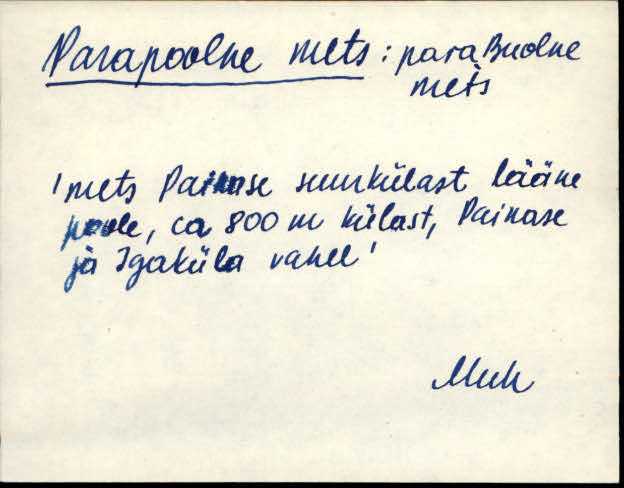 Parapoolne mets : paraBuolne
mets
'mets Painase suurkülast lääne
poole, ca 800 m külast, Painase
ja Igaküla vahel'
Muh